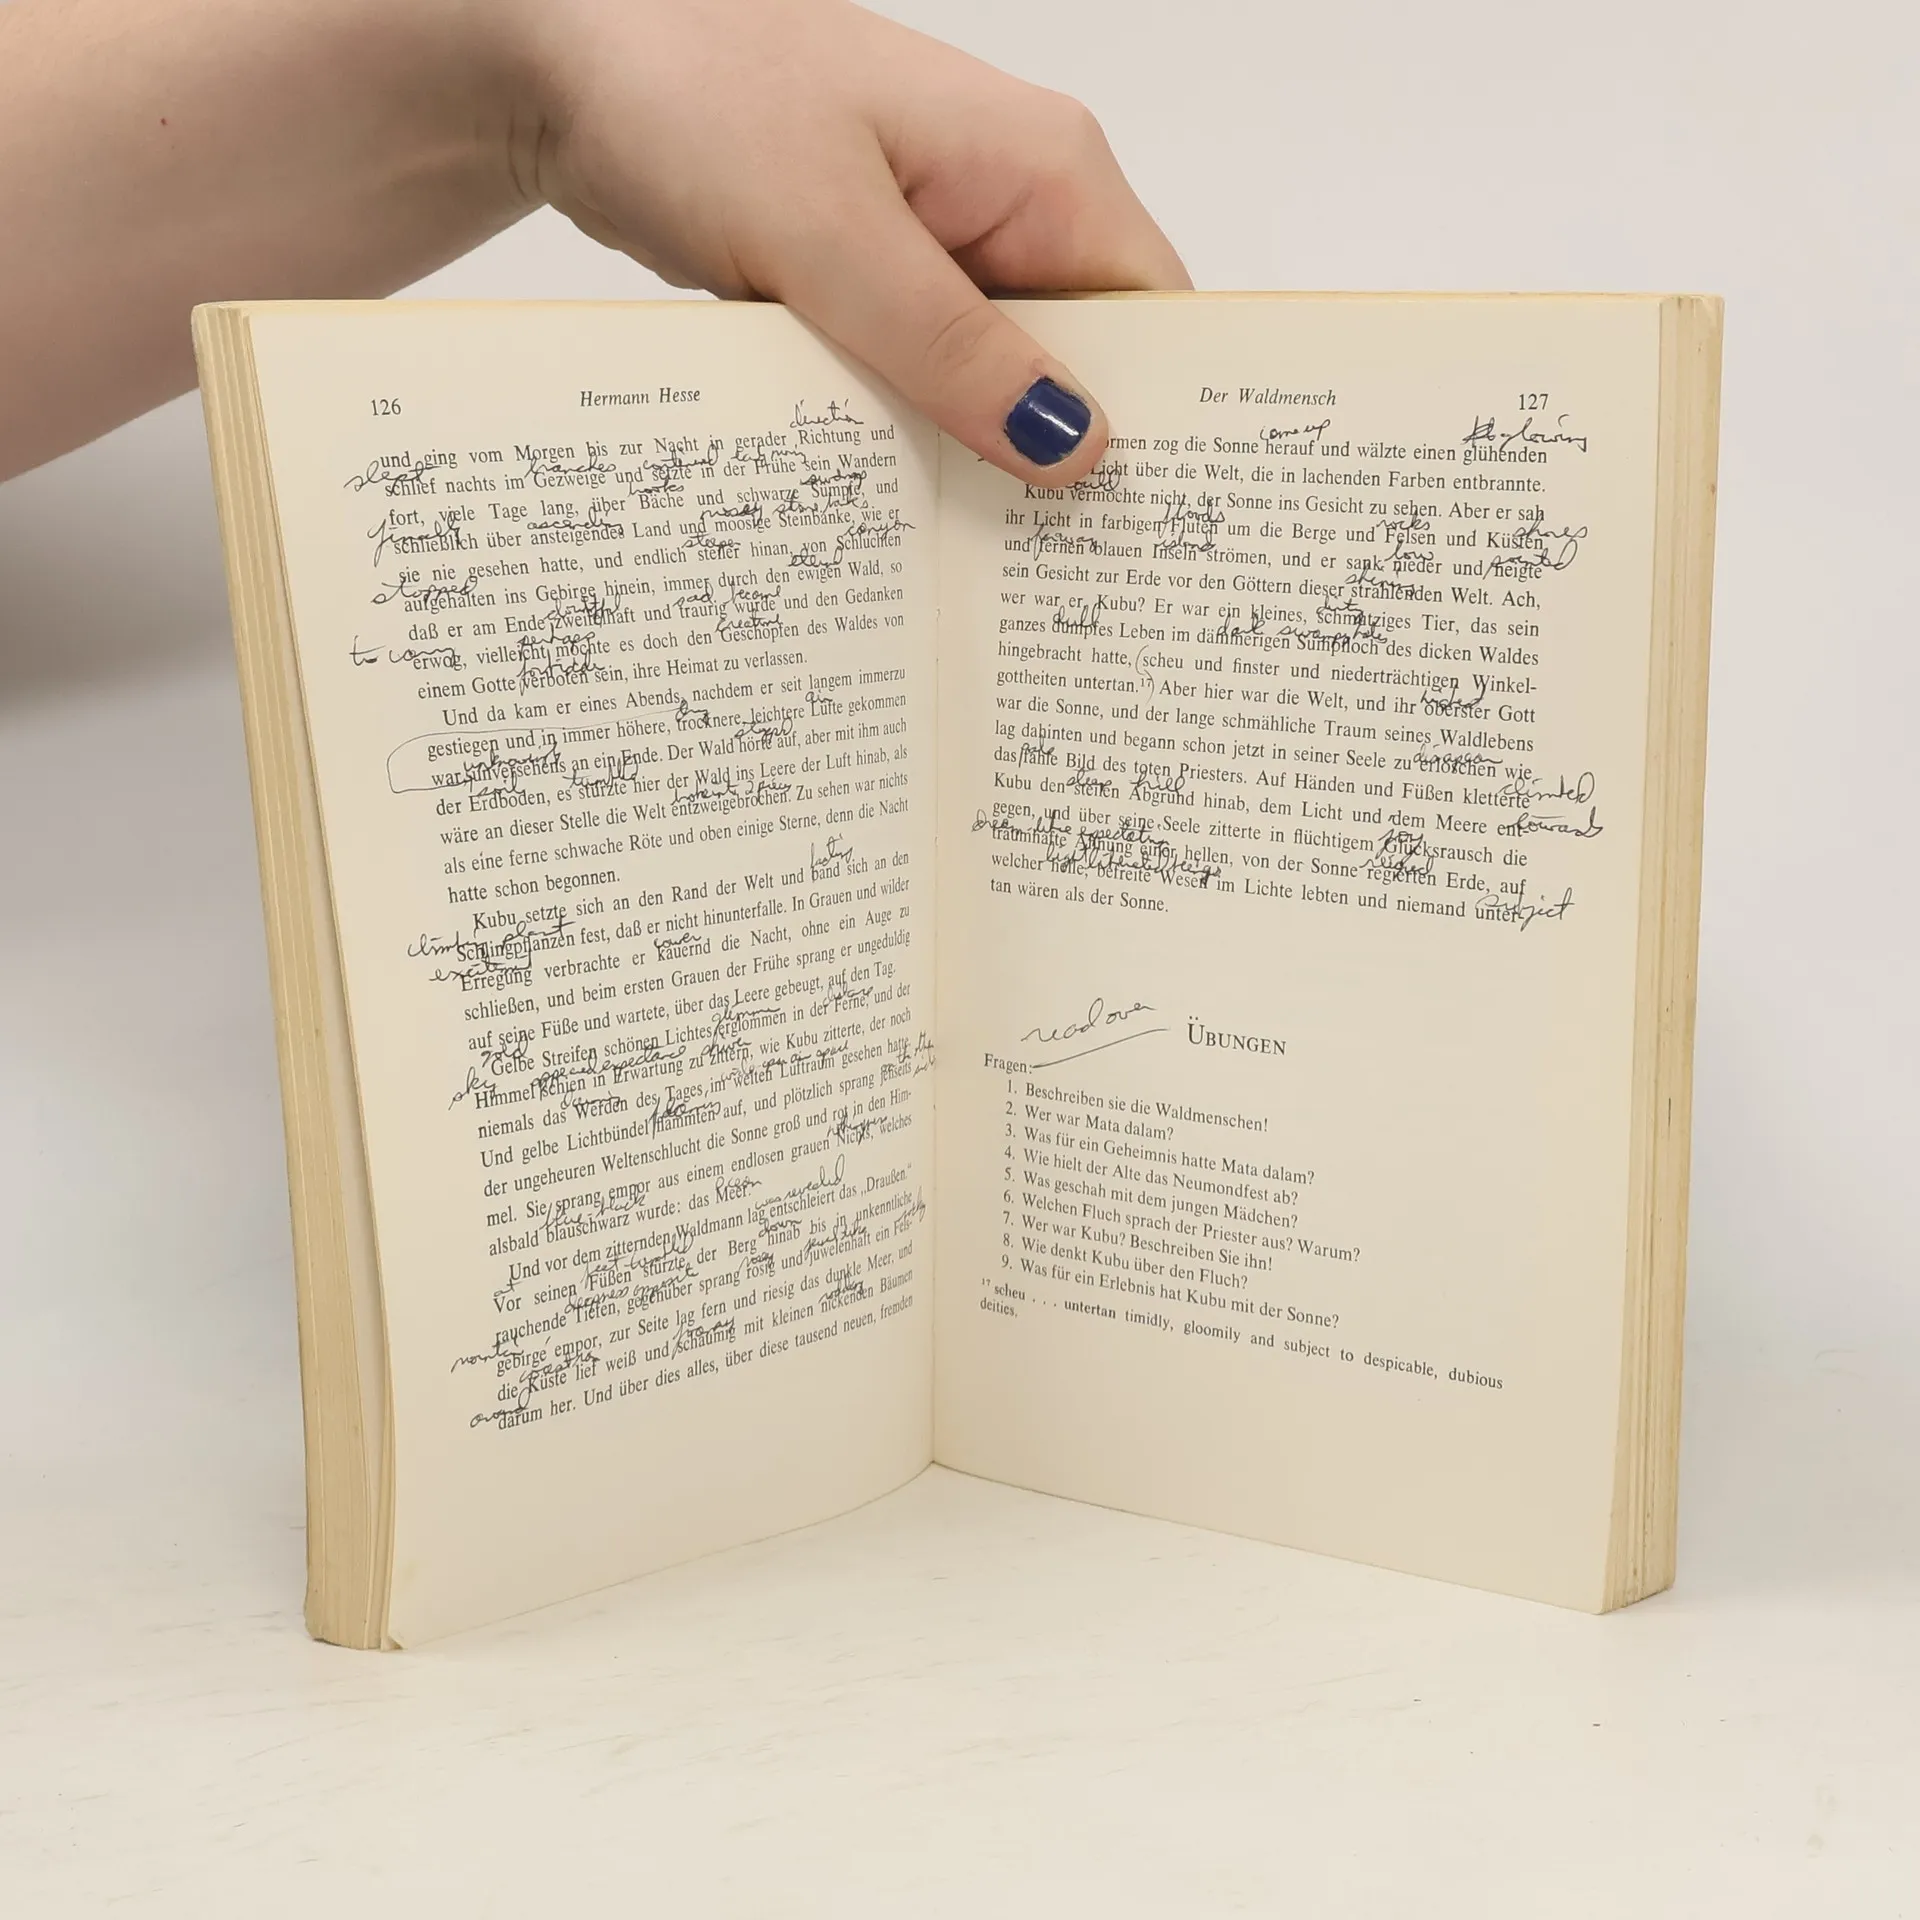 126
Hermann Hesse
direction
und ging vom Morgen bis zur Nacht in gerader Richtung und
slept branches
schlief nachts im Gezweige und setzte in der Frühe sein Wandern
fort, viele Tage lang, über Bäche und schwarze Sümpfe, und
finally ascending mossy stone
schließlich über ansteigendes Land und moosige Steinbänke, wie er
steeper canyon
sie nie gesehen hatte, und endlich steiler hinan, von Schluchten
stopped
aufgehalten ins Gebirge hinein, immer durch den ewigen Wald, so
doubtful sad became
daß er am Ende zweifelhaft und traurig wurde und den Gedanken
perhaps creature
erwog, vielleicht möchte es doch den Geschöpfen des Waldes von
forbidden
einem Gotte verboten sein, ihre Heimat zu verlassen.
Und da kam er eines Abends, nachdem er seit langem immerzu
dry air
gestiegen und in immer höhere, trocknere, leichtere Lüfte gekommen
war, unversehens an ein Ende. Der Wald hörte auf, aber mit ihm auch
soil tumbled
der Erdboden, es stürzte hier der Wald ins Leere der Luft hinab, als
wäre an dieser Stelle die Welt entzweigebrochen. Zu sehen war nichts
als eine ferne schwache Röte und oben einige Sterne, denn die Nacht
hatte schon begonnen.
Kubu setzte sich an den Rand der Welt und band sich an den
climbing plant
Schlingpflanzen fest, daß er nicht hinunterfalle. In Grauen und wilder
cower
Erregung verbrachte er kauernd die Nacht, ohne ein Auge zu
schließen, und beim ersten Grauen der Frühe sprang er ungeduldig
auf seine Füße und wartete, über das Leere gebeugt, auf den Tag.
Gelbe Streifen schönen Lichtes erglommen in der Ferne, und der
sky
Himmel schien in Erwartung zu zittern, wie Kubu zitterte, der noch
niemals das Werden des Tages im weiten Luftraum gesehen hatte.
Und gelbe Lichtbündel flammten auf, und plötzlich sprang jenseits
der ungeheuren Weltenschlucht die Sonne groß und rot in den Him-
mel. Sie sprang empor aus einem endlosen grauen Nichts, welches
blue-black ocean
alsbald blauschwarz wurde: das Meer.
was revealed
Und vor dem zitternden Waldmann lag entschleiert das „Draußen.“
at feet down
Vor seinen Füßen stürzte der Berg hinab bis in unkenntliche
rosy
rauchende Tiefen, gegenüber sprang rosig und juwelenhaft ein Fels-
gebirge empor, zur Seite lag fern und riesig das dunkle Meer, und
foamy nodding
die Küste lief weiß und schaumig mit kleinen nickenden Bäumen
around
darum her. Und über dies alles, über diese tausend neuen, fremden
Der Waldmensch
127
come up glowing
rmen zog die Sonne herauf und wälzte einen glühenden
Licht über die Welt, die in lachenden Farben entbrannte.
could
Kubu vermochte nicht, der Sonne ins Gesicht zu sehen. Aber er sah
floods rocks shores
ihr Licht in farbigen Fluten um die Berge und Felsen und Küsten
faraway island low
und fernen blauen Inseln strömen, und er sank nieder und neigte
shining
sein Gesicht zur Erde vor den Göttern dieser strahlenden Welt. Ach,
dirty
wer war er, Kubu? Er war ein kleines, schmutziges Tier, das sein
dull dark swampy hole
ganzes dumpfes Leben im dämmerigen Sumpfloch des dicken Waldes
hingebracht hatte, (scheu und finster und niederträchtigen Winkel-
gottheiten untertan.¹⁷) Aber hier war die Welt, und ihr oberster Gott
war die Sonne, und der lange schmähliche Traum seines Waldlebens
lag dahinten und begann schon jetzt in seiner Seele zu erlöschen wie
pale disappear
das fahle Bild des toten Priesters. Auf Händen und Füßen kletterte
steep hill climbed
Kubu den steilen Abgrund hinab, dem Licht und dem Meere ent-
towards
gegen, und über seine Seele zitterte in flüchtigem Glücksrausch die
dream-like joy
traumhafte Ahnung einer hellen, von der Sonne regierten Erde, auf
welcher helle, befreite Wesen im Lichte lebten und niemand unter-
subject
tan wären als der Sonne.
read over
ÜBUNGEN
Fragen:
1. Beschreiben sie die Waldmenschen!
2. Wer war Mata dalam?
3. Was für ein Geheimnis hatte Mata dalam?
4. Wie hielt der Alte das Neumondfest ab?
5. Was geschah mit dem jungen Mädchen?
6. Welchen Fluch sprach der Priester aus? Warum?
7. Wer war Kubu? Beschreiben Sie ihn!
8. Wie denkt Kubu über den Fluch?
9. Was für ein Erlebnis hat Kubu mit der Sonne?
¹⁷ scheu . . . untertan timidly, gloomily and subject to despicable, dubious
deities.